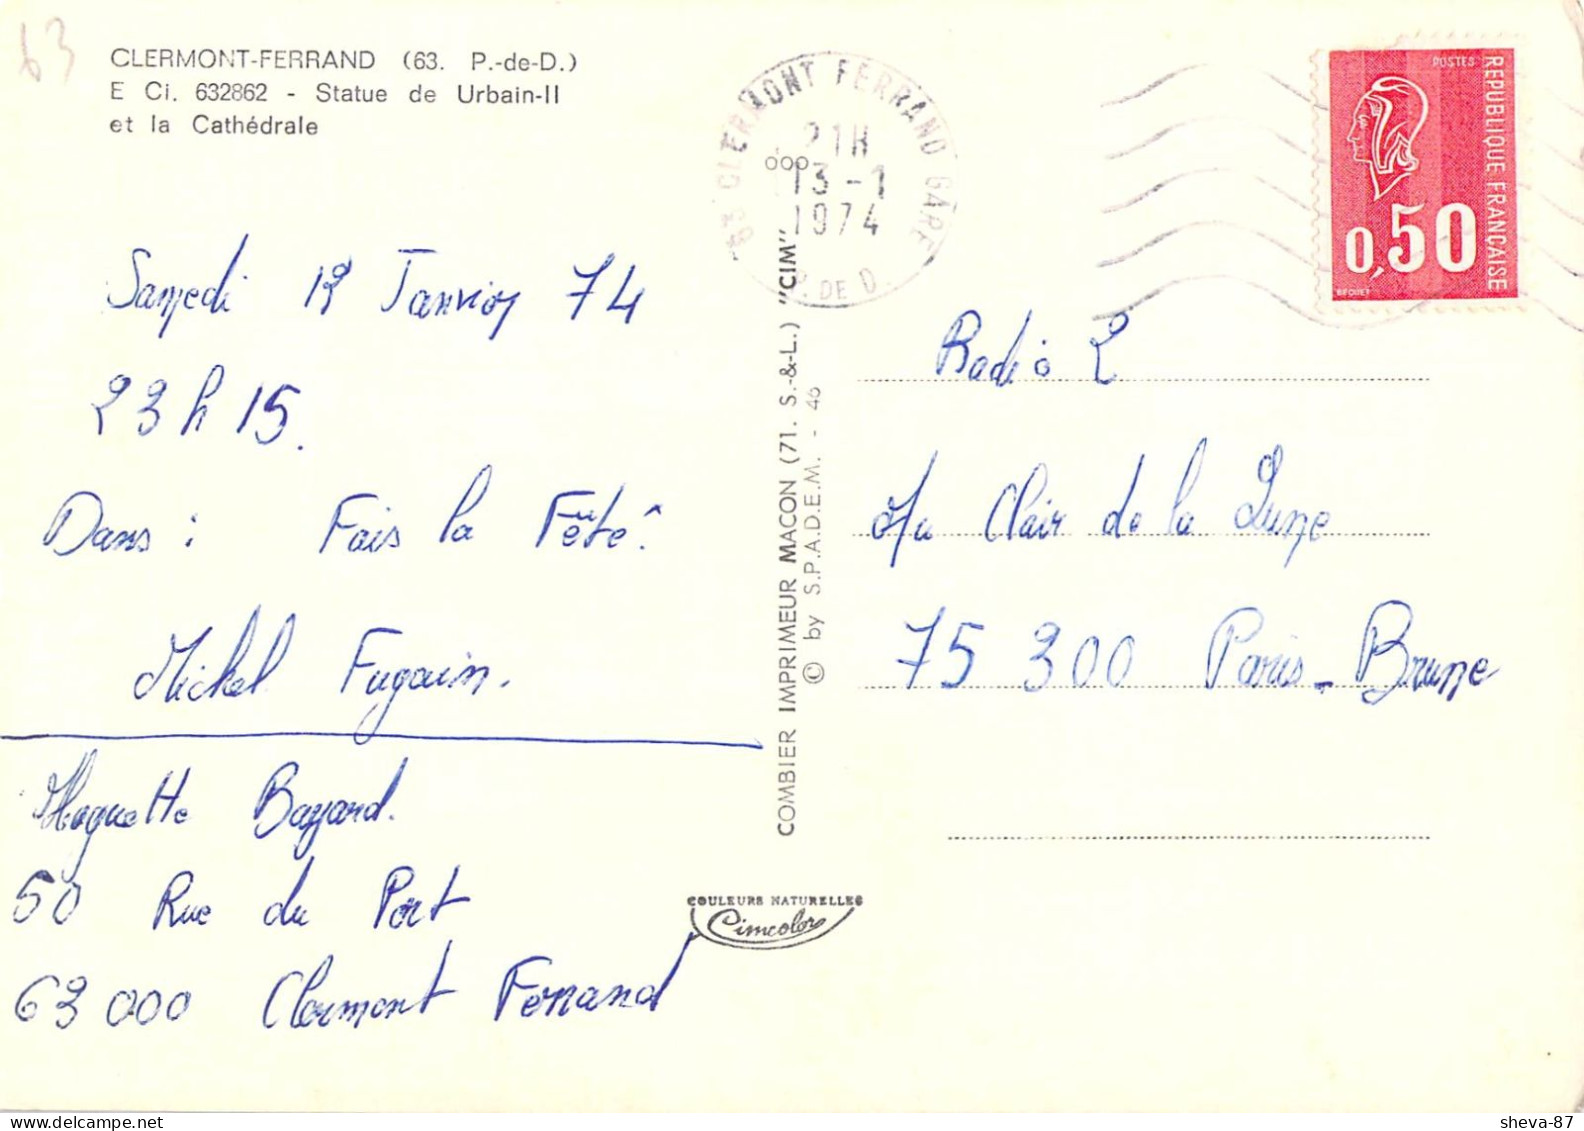 63
CLERMONT-FERRAND (63. P.-de-D.)
E Ci. 632862 - Statue de Urbain-II
et la Cathédrale
63 CLERMONT FERRAND GARE
21H
13 -1
1974
P. DE D.
POSTES
REPUBLIQUE FRANCAISE
0,50
BEQUET
Samedi 12 Janvier 74
23 h 15.
Dans : Fais la Fête.
Michel Fugain.
Huguette Bayard.
50 Rue du Port
63 000 Clermont Ferrand
COMBIER IMPRIMEUR MACON (71. S.-&-L.) "CIM"
© by S.P.A.D.E.M. - 46
COULEURS NATURELLES
Cimcolor
Radio 2
Au Clair de la Lune
75 300 Paris-Brune
sheva-87